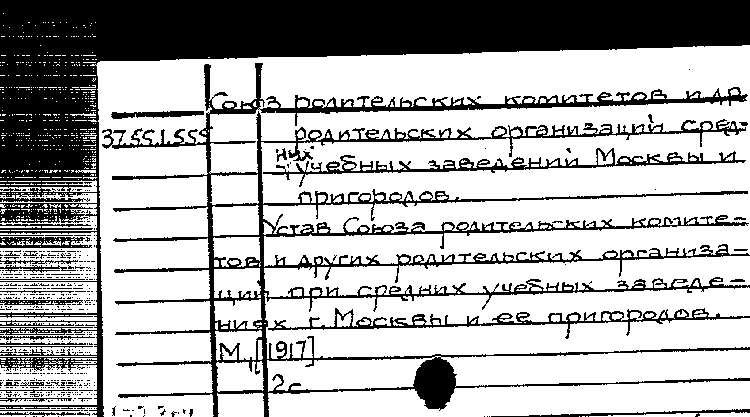 Союз родительских комитетов и др.
37.55.1.555 родительских организаций сред-
них учебных заведений Москвы и
пригородов.
Устав Союза родительских комите=
тов и других родительских организа-
ций при средних учебных заведе-
ниях г. Москвы и ее пригородов.
М., [1917].
2 с.